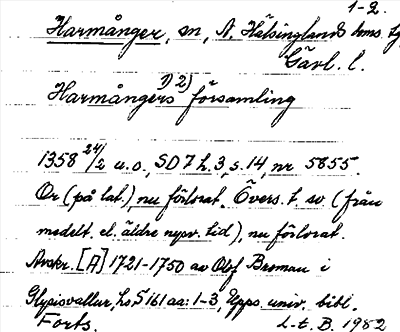 1-2.
Harmånger, sn, N. Hälsinglands doms. tg,
Gävl. l.
1) 2)
Harmångers församling
1358 24/2 u.o., SD 7 h. 3, s. 14, nr 5855.
Or (på lat.), nu förlorat. Övers. t. sv (från
medelt. el. äldre nysv. tid), nu förlorat.
Avskr. [A] 1721-1750 av Olof Broman i
Glysisvallur, hs S 161 aa: 1-3, Upps. univ. bibl.
Forts. L-t. B. 1982